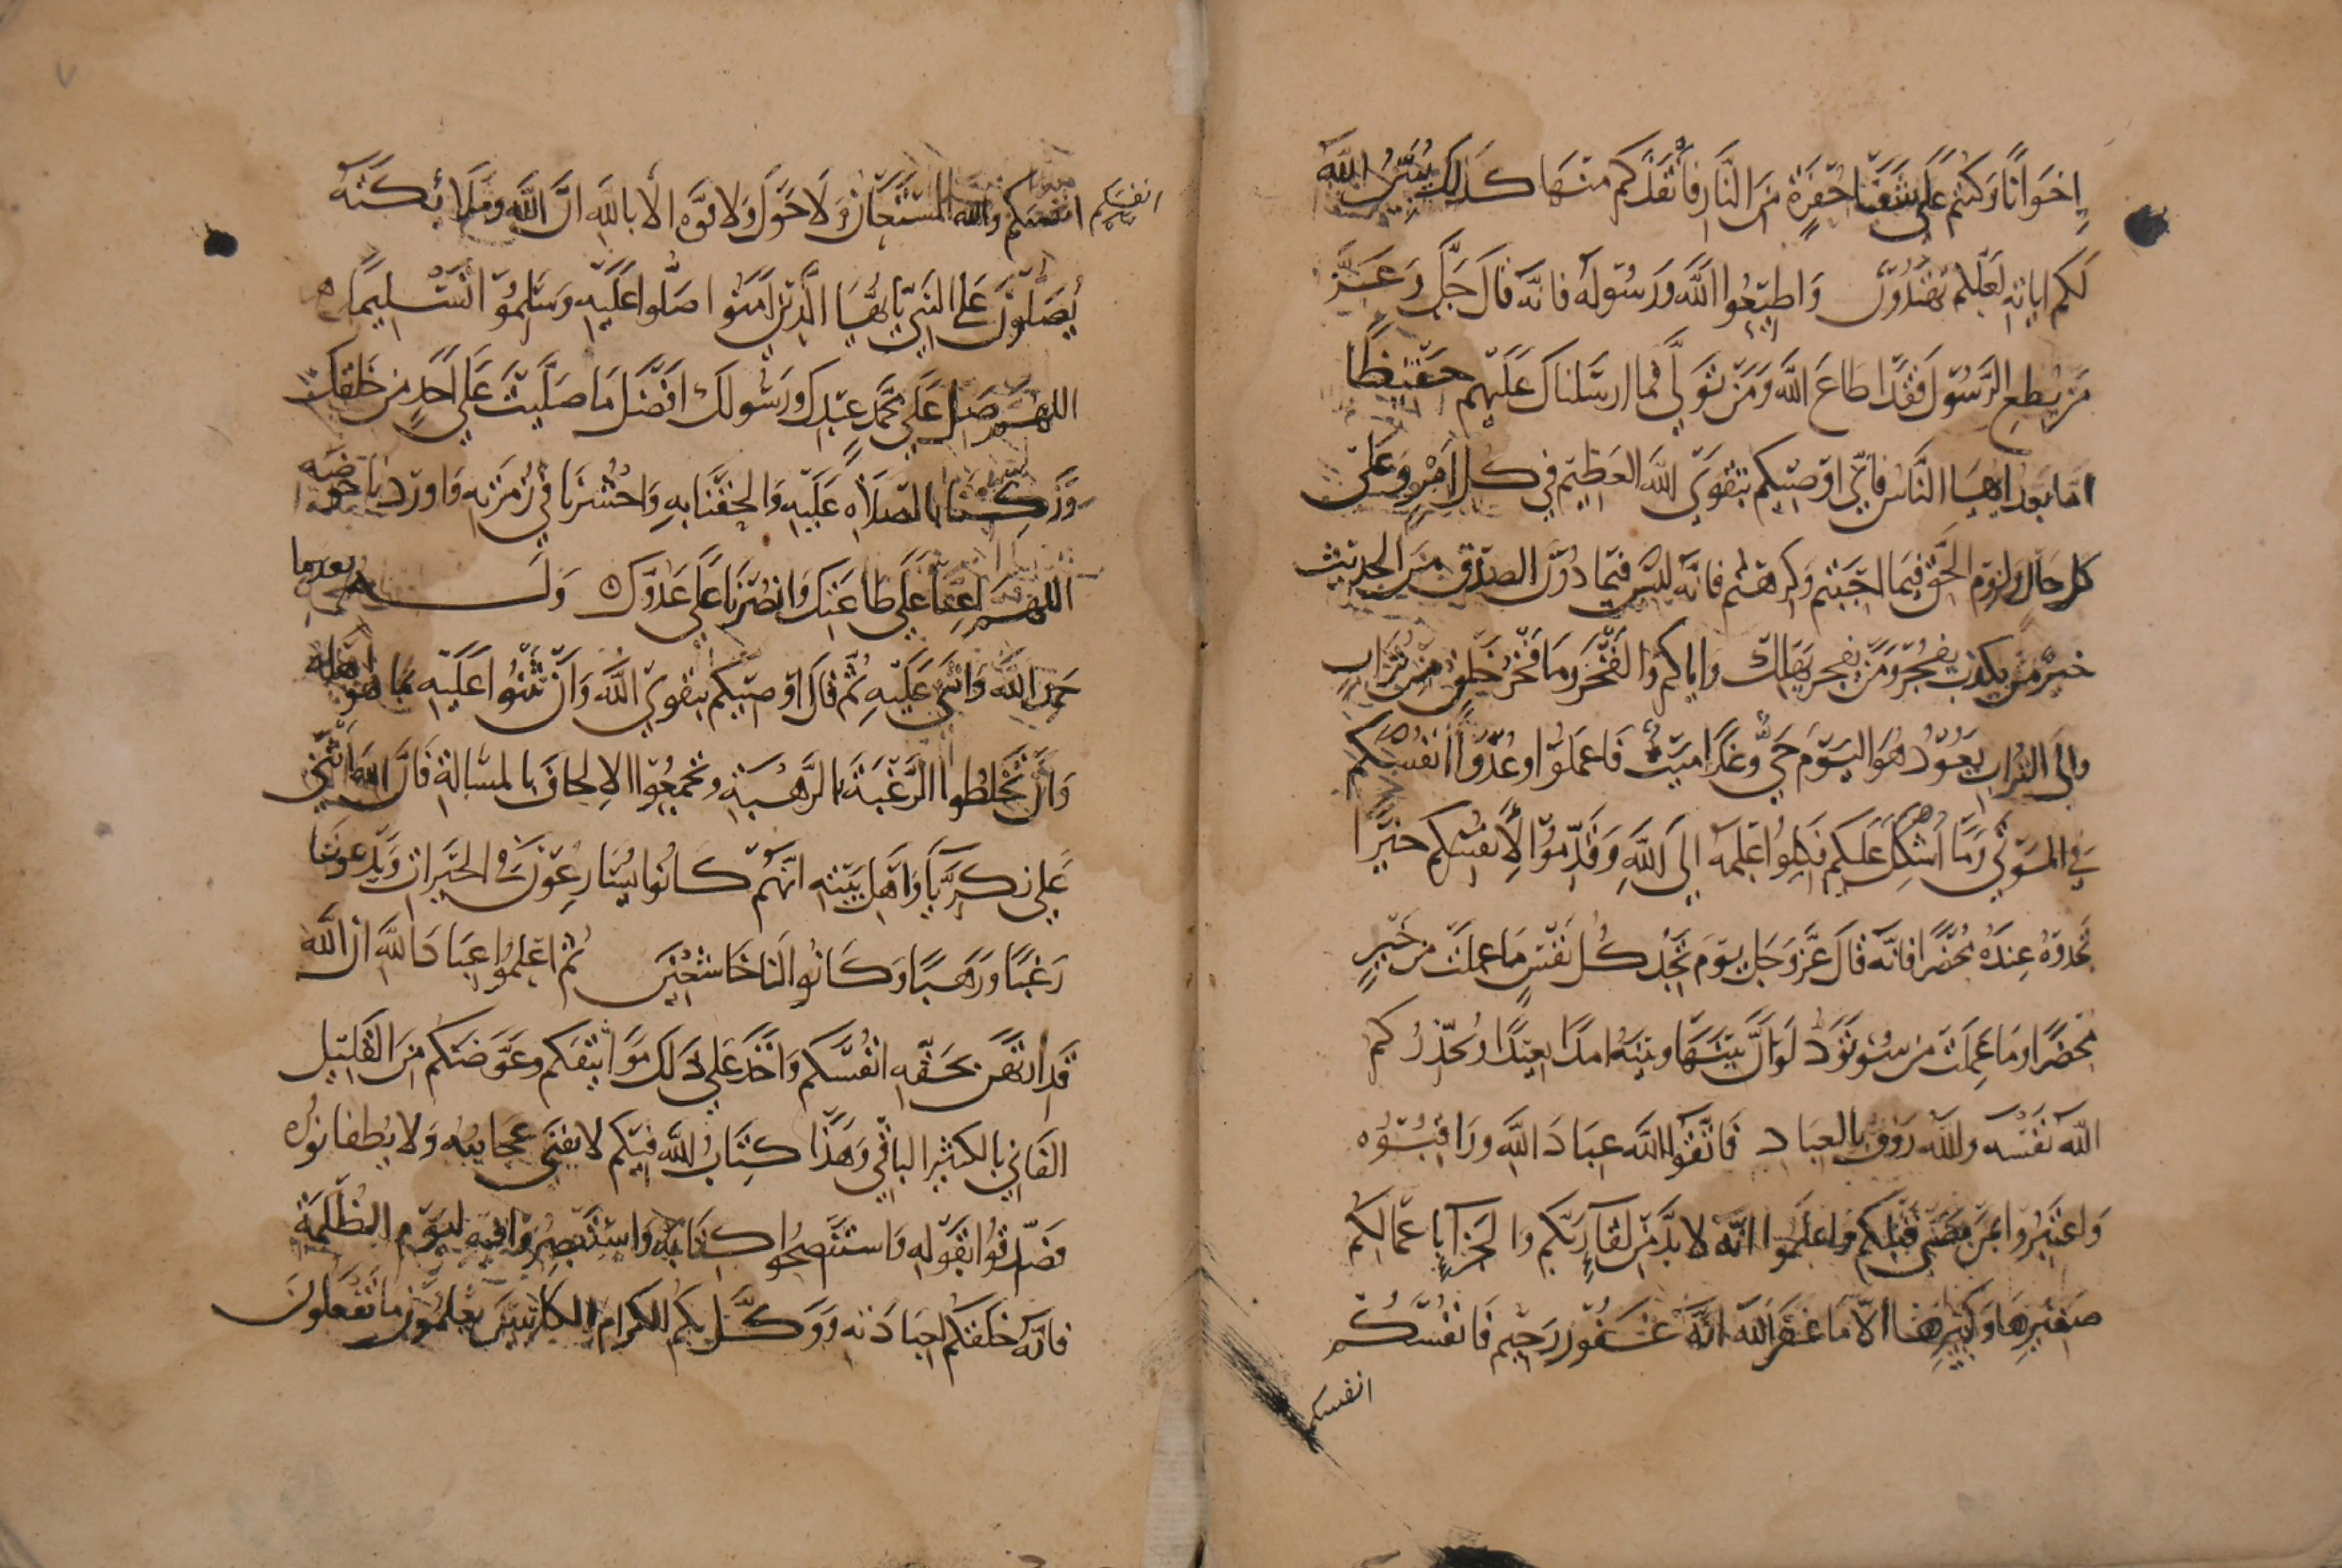 إِخوَانًا وَكنتم عَلَى شَفَا حُفرَةٍ مِنَ النَّارِ فَأَنقَذَكم منهَا كَذلِكَ يُبَيِّنُ اللَّه
لَكُم اياتِهِ لَعَلَّكم تهتَدُونَ وَاطِيعُوا اللَّهَ وَرَسُولَه فانَّه قالَ جَلَّ وَعَزَّ
مَن يُطِعِ الرَّسُولَ فَقَد اطَاعَ اللَّهَ وَمَن تَوَلَّى فما ارسَلناكَ عَلَيهِم حَفِيظًا
امَا بَعد ايُّهَا النَّاس فاِنّي اوصِيكم بتقوَى اللَّه العَظِيم في كُلِّ امرٍ وَعَلَى
كل حالٍ ولزوم الحَقّ فيمَا احبَبتم وَكرهتُم فانَّه لَيسَ فيمَا دُونَ الصدقِ مِنَ الحديث
خيرٌ مَن يكذب يفجُر وَمَن يفجر يَهلك واياكم وَالفَخرَ وَمَا فَخرُ مَن خُلِقَ مِن تُرَابٍ
والى التُرابِ يَعُودُ هُوَ اليَومَ حَيٌّ وَغَدًا مَيِّتٌ فَاعمَلُوا وعُدّوا انفُسَكم
في الموتَى وَمَا أُشكِلَ عَلَيكم فَكِلُوا عِلمَه الى اللَّهِ وَقَدِّمُوا لأَنفُسِكم خَيرًا
تجدوهُ عِندَهُ مُحضَرًا فانَّه قالَ عَزَّ وَجَلَّ يَومَ تَجِدُ كُلُّ نَفسٍ مَا عملَت من خَيرٍ
مُحضَرًا وَمَا عَمِلَت من سُوءٍ تَوَدُّ لَو انَّ بَينَهَا وبَينَهُ امدًا بعِيدًا وَيُحَذِّرُكم
اللَّه نَفسَه واللَّه رَؤفٌ بالعِبَاد فَاتَّقوا اللَّه عِبَادَ اللَّهِ وَرَاقِبُوُه
وَاعتَبِرُوا بمَن مَضَى قَبلَكم وَاعلَمُوا انَّه لا بدَّ مِن لقَآءِ رَبِّكم وَالجَزآءِ باعمَالِكُم
صَغِيرِهَا وَكَبِيرِهَا الّا مَا غَفَرَ اللَّه انَّه غَفُور رَحِيم فَانفُسَكُم
انفسكم
انفسَكم
انفسكم واللَّه المُستَعَانُ وَلَا حَولَ وَلا قوَّه الا باللَّهِ انَّ اللَّه وَمَلَائكَتَه
يُصَلُّونَ عَلَى النَبِيّ يا ايُّهَا الَّذِينَ امَنُوا صَلُّوا عَلَيهِ وَسَلِّمُوا تَسلِيمًا ه
اللهُمَّ صَلِّ عَلَى محَمَّدٍ عَبدِكَ وَرَسُولِكَ افضَلَ مَا صَلَّيتَ عَلَى أَحَدٍ مِن خَلقِكَ
وَزَكِّنَا بالصلاه عَلَيهِ وَالحِقنَا بهِ وَاحشُرنَا في زُمرَتِه وَاورِدنا حوضَه
اللهُمَّ اَعِنّا عَلَى طاعَتِكَ وَانصُرنَا عَلَى عَدُوِّكَ ه وَلَه بعدما
حَمِدَ اللَّهَ وَاثنى عَلَيهِ ثُمَّ قالَ اوصيكم بتقوَى اللَّه وَاَن تُثنُوا عَلَيهِ بما هو اَهله
وَاَن تَخلِطُوا الرَّغبَةَ بالرَّهبَةِ وتجمَعُوا الاِلحافَ بالمسَالةِ فَاِنَّ اللَّهَ اثنَى
عَلَى زَكَرِيَّا وَاهلِ بَيتِهِ انَّهُم كَانُوا يُسَارِعُونَ في الخَيراتِ وَيَدعُونَنا
رَغبًا وَرَهَبًا وَكَانُوا لَنا خَاشعِينَ ثم اعلمُوا عِبَادَ اللَّهِ ان اللَّه
قَد ارتَهَنَ بحَقّهِ انفُسَكم وَاخَذَ عَلَى ذَلِكَ مَوَاثِيقَكم وعَوَّضَكم مِنَ القَلِيلِ
الفَاني بالكثيرِ الباقي وَهَذَا كِتَابُ اللَّه فيكم لا يفنَى عَجَايبُه وَلا يُطفا نورُه
فصَدّقُوا بقَولِه وَاستَنصِحُوا كِتَابَه وَاستَبصِرُوا فيه ليَوم الظُّلمَةِ
فانَّه خَلَقكم لِعِبَادَتِهِ وَوَكَّلَ بكُم الكرَام الكاتِبِينَ يعلمُونَ ما تَفعَلونَ